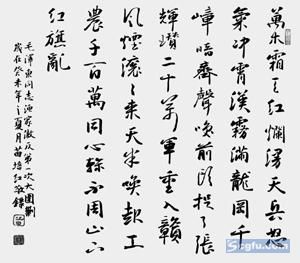 萬木霜天紅爛漫天兵怒
氣沖霄漢霧滿龍岡千
嶂暗齊聲喚前頭捉了張
輝瓚二十萬軍重入贛
風煙滾滾來天半喚起工
農千百萬同心幹不周山下
紅旗亂
毛澤東同志漁家傲反第一次大圍剿
歲在癸未年之夏月苗培紅敬錄